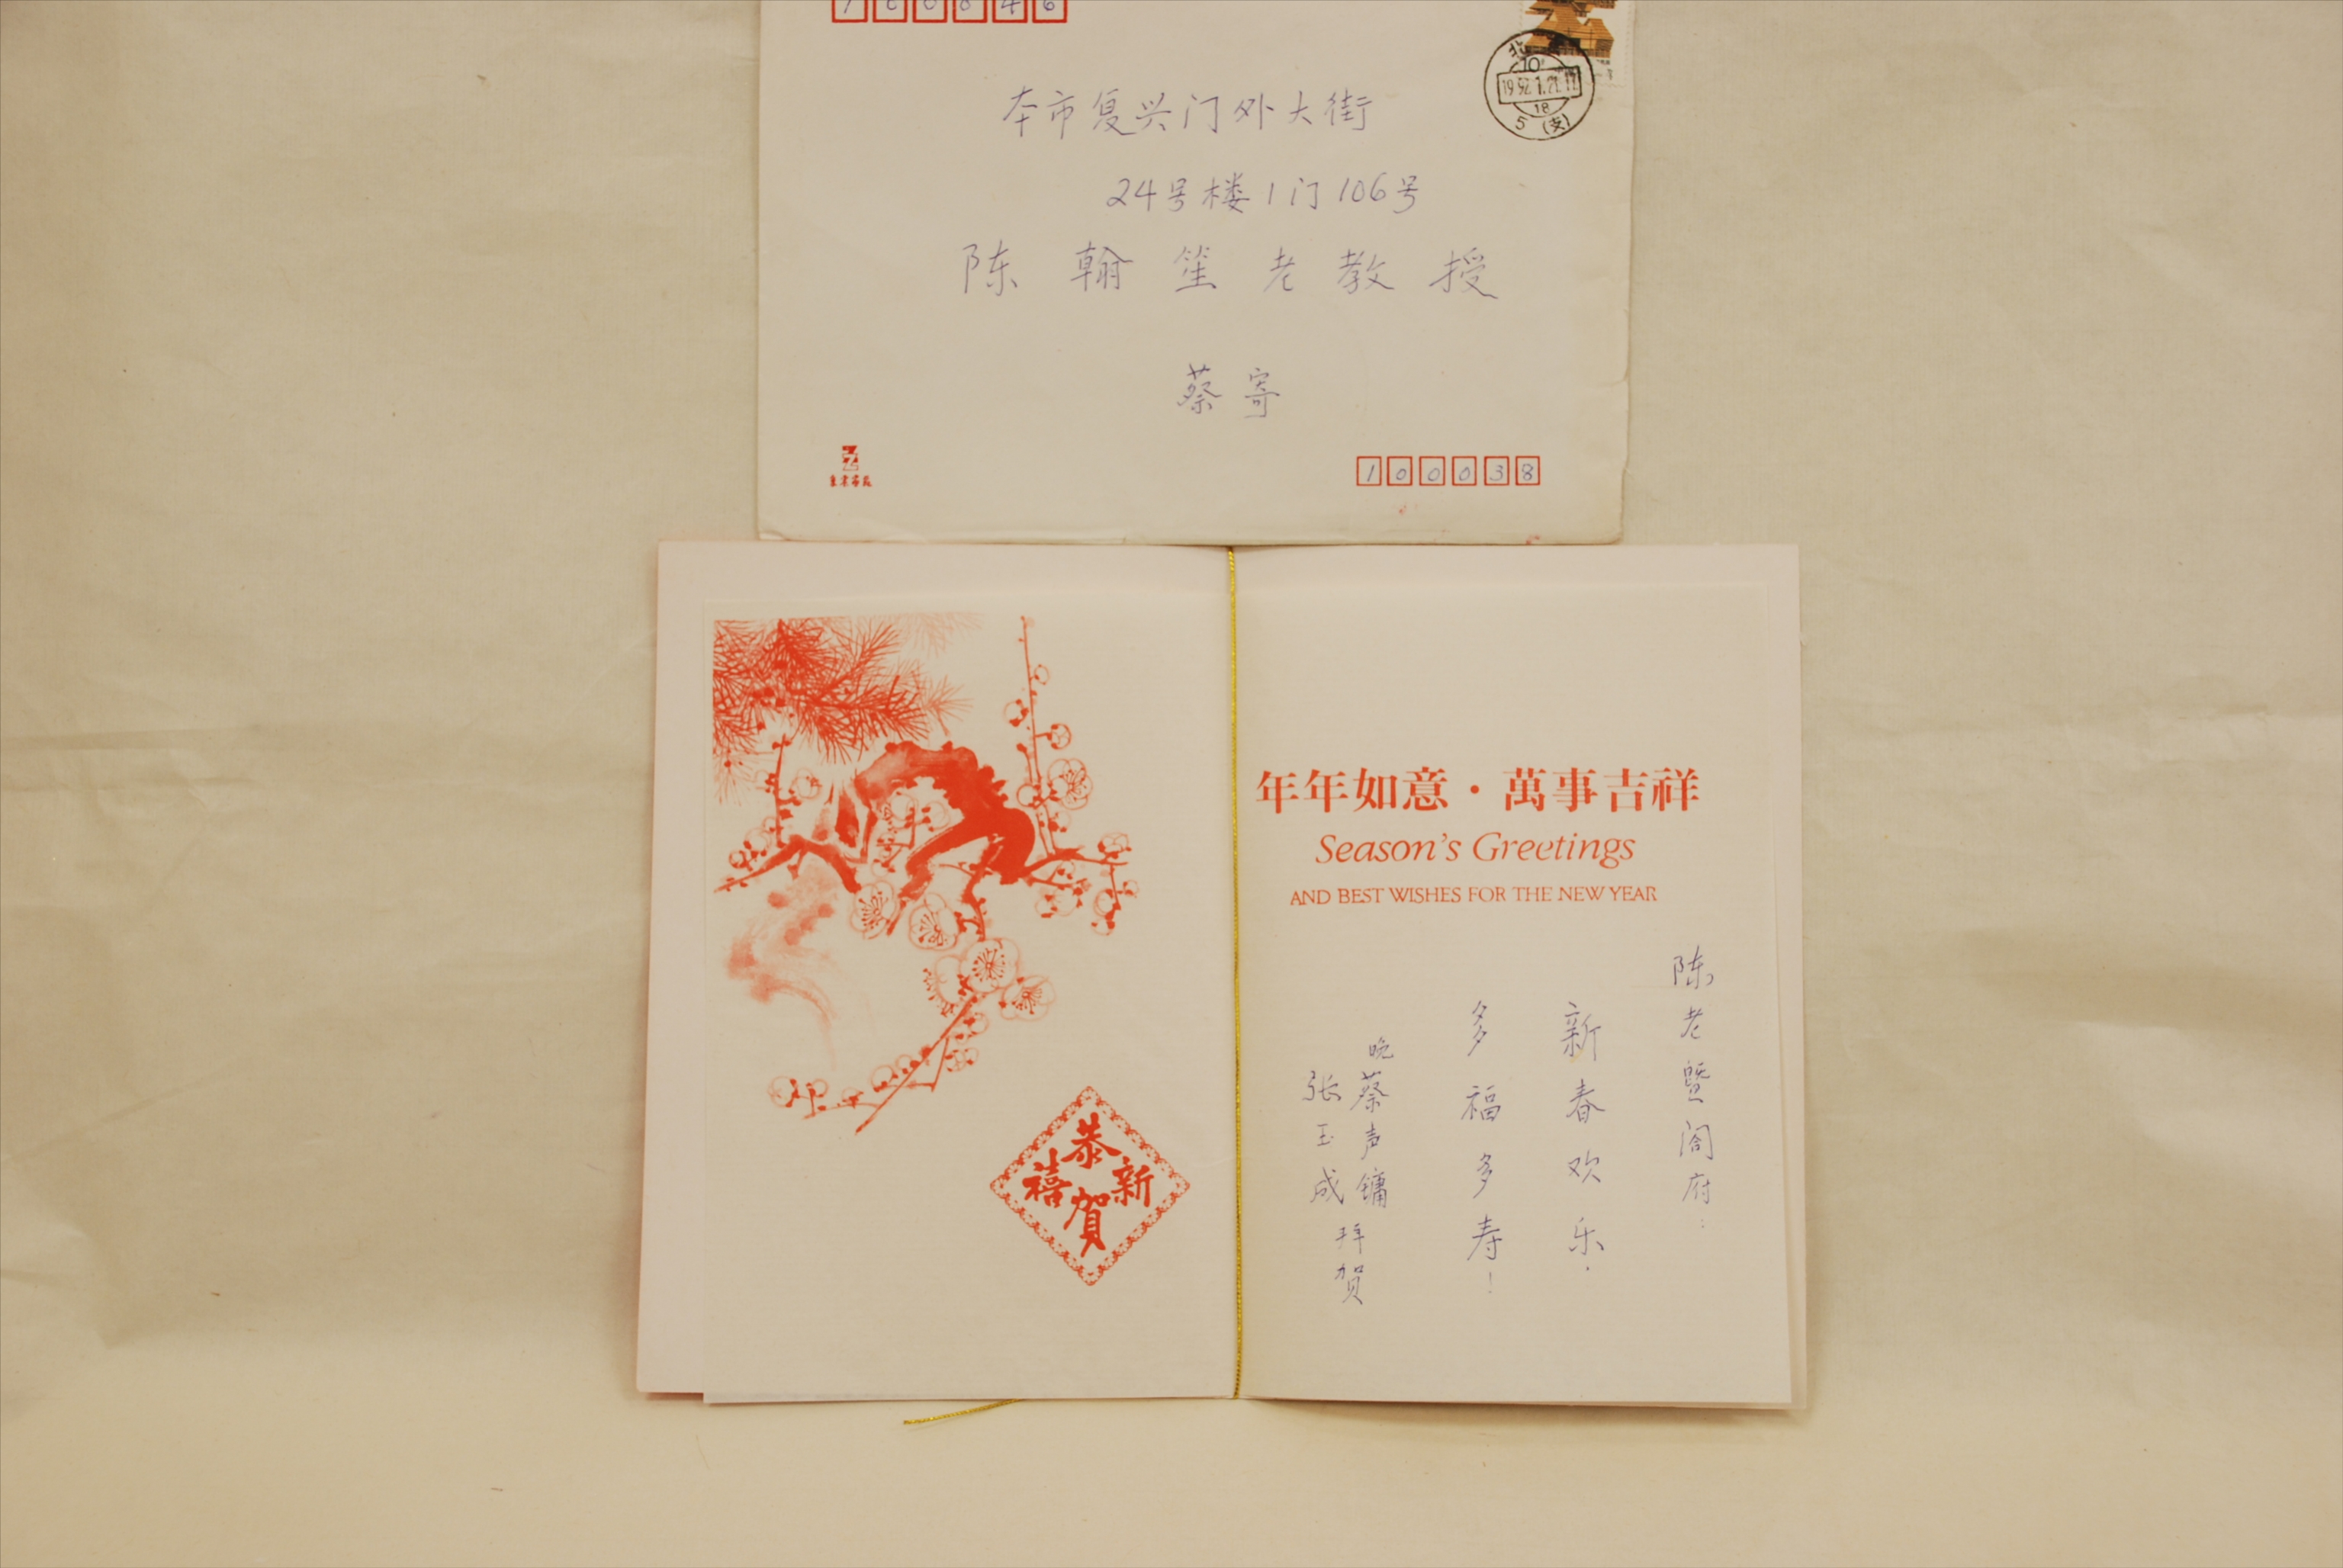 100846
本市复兴门外大街
24号楼1门106号
陈翰笙老教授
蔡寄
100038
年年如意·萬事吉祥
Season's Greetings
AND BEST WISHES FOR THE NEW YEAR
陈老暨阁府:
新春欢乐.
多福多寿!
晚蔡声镛
张玉成
拜贺
恭賀新禧
北
10
1992.1.21.17
18
5(支)